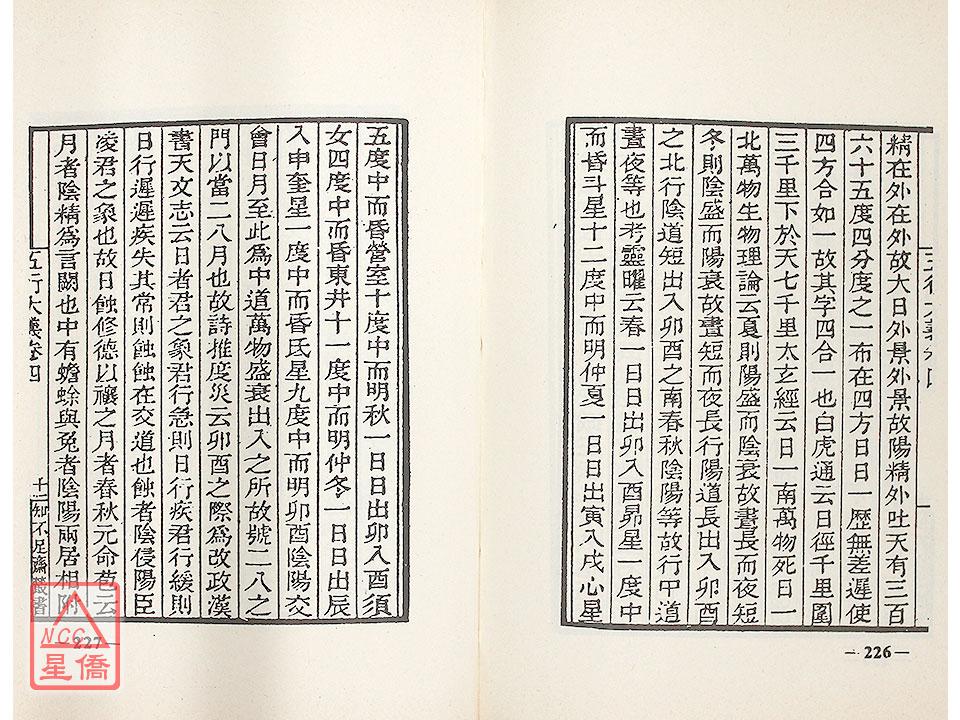 精在外在外故大日外景外景故陽精外吐天有三百
六十五度四分度之一布在四方日日一歷無差遲使
四方合如一故其字四合一也白虎通云日徑千里圍
三千里下於天七千里太玄經云日一南萬物死日一
北萬物生物理論云夏則陽盛而陰衰故晝長而夜短
冬則陰盛而陽衰故晝短而夜長行陽道長出入卯酉
之北行陰道短出入卯酉之南春秋陰陽等故行中道
晝夜等也考靈曜云春一日日出卯入酉昴星一度中
而昏斗星十二度中而明仲夏一日日出寅入戌心星
— 226 —
五度中而昏營室十度中而明秋一日日出卯入酉須
女四度中而昏東井十一度中而明仲冬一日日出辰
入申奎星一度中而昏氐星九度中而明卯酉陰陽交
會日月至此爲中道萬物盛衰出入之所故號二八之
門以當二八月也故詩推度災云卯酉之際爲改政漢
書天文志云日者君之象君行急則日行疾君行緩則
日行遲遲疾失其常則蝕蝕在交道也蝕者陰侵陽臣
凌君之象也故日蝕修德以禳之月者春秋元命苞云
月者陰精爲言闕也中有蟾蜍與兔者陰陽兩居相附
五行大義卷四
十二 知不足齋叢書
— 227 —
NCC
星僑